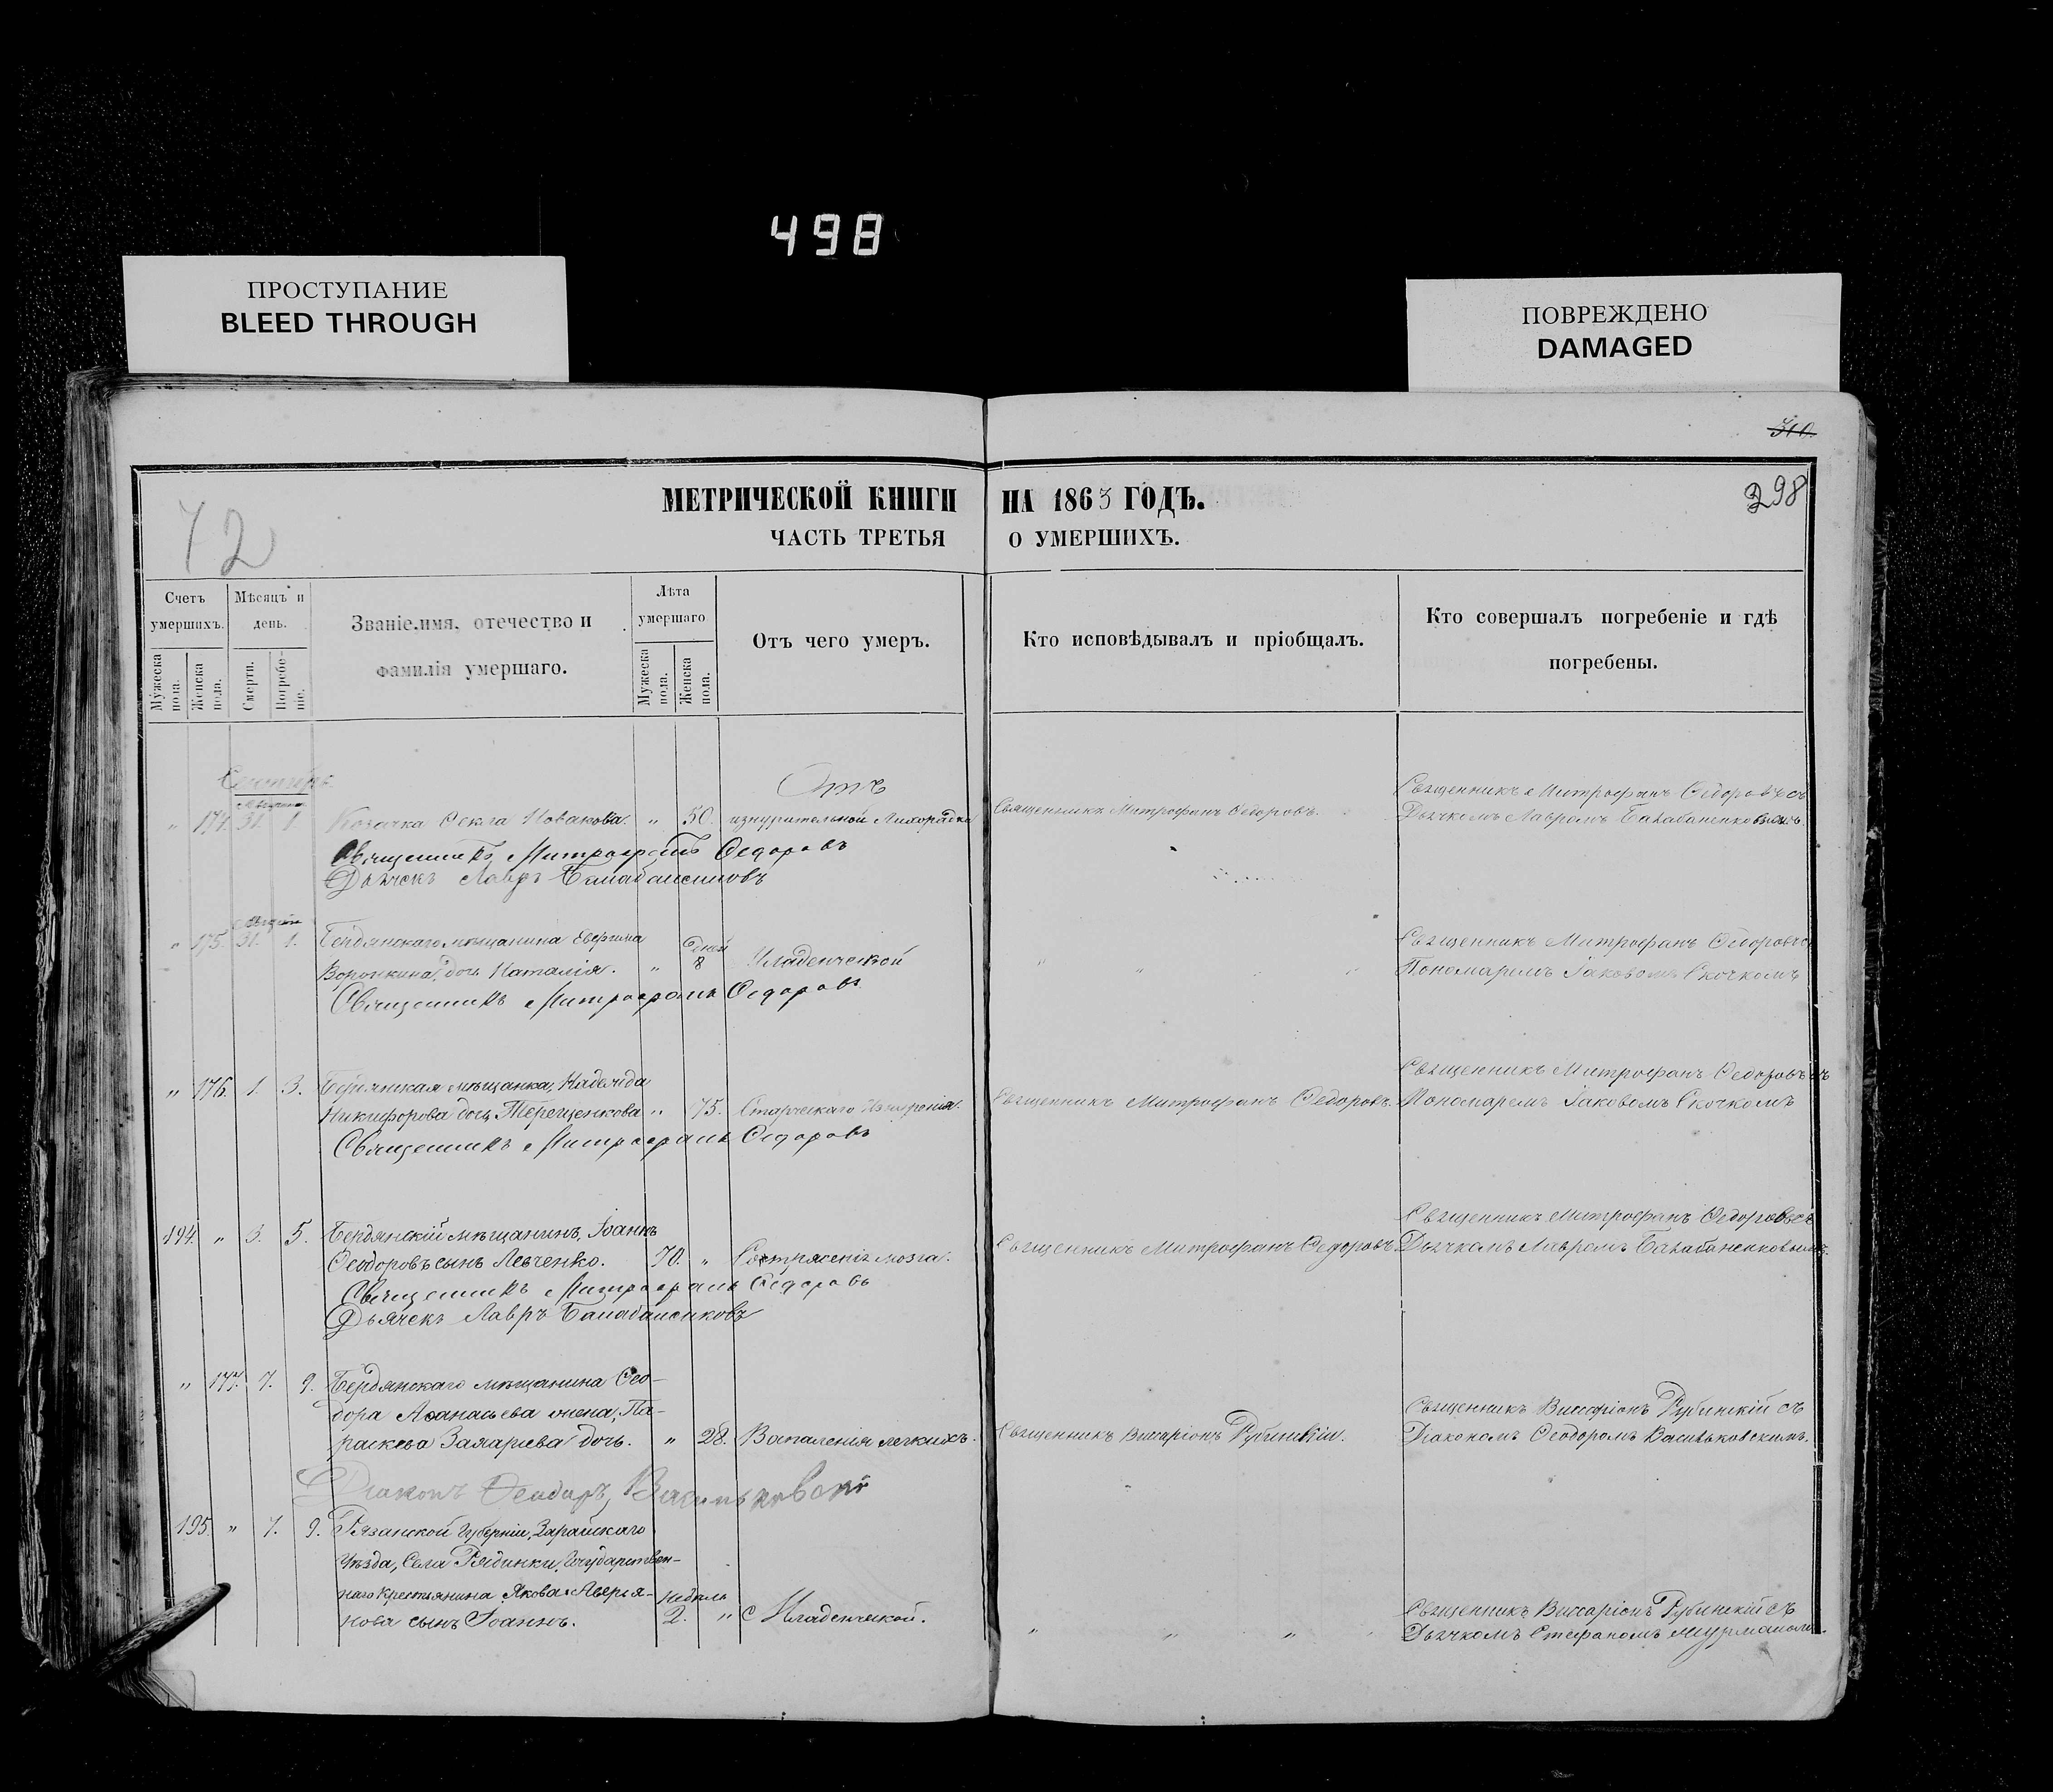 498
ПРОСТУПАНИЕ
BLEED THROUGH
ПОВРЕЖДЕНО
DAMAGED
310.
298
72
МЕТРИЧЕСКОЙ КНИГИ НА 1863 ГОДЪ.
ЧАСТЬ ТРЕТЬЯ О УМЕРШИХЪ.
Счетъ умершихъ.
Мужеска пола.
Женска пола.
Мѣсяцъ и день.
Смерти.
Погребе-ніе.
Званіе, имя, отечество и фамилія умершаго.
Лѣта умершаго
Мужеска пола.
Женска пола.
Отъ чего умеръ.
Кто исповѣдывалъ и пріобщалъ.
Кто совершалъ погребеніе и гдѣ погребены.
Сентябрь
Отъ
Священникъ Митрофанъ Ѳедоровъ съ
" 174. 31. 1. Козачка Ѳекла " 50. изнурительной Лихорадки Священникъ Митрофанъ Ѳедоровъ. Дьячкомъ Лавромъ Балабаненковымъ.
Священникъ Митрофанъ Ѳедоровъ
Дьячекъ Лавръ Балабаненковъ
Августа
" 175. 31. 1. Бердянскаго мѣщанина Евфима дней Священникъ Митрофанъ Ѳедоровъ съ
Воронкина, дочь Наталія. " 8 Младенческой " " " " Пономаремъ Іаковомъ Скочкомъ
Священникъ Митрофанъ Ѳедоровъ
Священникъ Митрофанъ Ѳедоровъ съ
" 176. 1. 3. Бердянская мѣщанка, Надежда
Никифорова дочь Терещенкова " 75. Старческаго Священникъ Митрофанъ Ѳедоровъ. Пономаремъ Іаковомъ Скочкомъ
Священникъ Митрофанъ Ѳедоровъ
Священникъ Митрофанъ Ѳедоровъ съ
194. " 3. 5. Бердянскій мѣщанинъ, Іоаннъ
Ѳеодоровъ сынъ Левченко. 70. " Сотрясенія мозга. Священникъ Митрофанъ Ѳедоровъ Дьячкомъ Лавромъ Балабаненковымъ.
Священникъ Митрофанъ Ѳедоровъ
Дьячекъ Лавръ Балабаненковъ
" 177. 7. 9. Бердянскаго мѣщанина Ѳео-
дора Аѳанасьева жена, Па- Священникъ Виссаріонъ Рубинскій съ
раскева Захаріева дочь. " 28. Воспаленія легкихъ. Священникъ Виссаріонъ Рубинскій. Діакономъ Ѳеодоромъ Васильковскимъ.
Діаконъ Ѳеодоръ Васильковскій
195. " 7. 9. Рязанской Губерніи, Зарайскаго
Уѣзда, Села Государствен-
наго Крестьянина Якова Аверья- недѣли Священникъ Виссаріонъ Рубинскій съ
нова сынъ Іоаннъ. 2. " Младенческой. " " " Дьячкомъ Стефаномъ